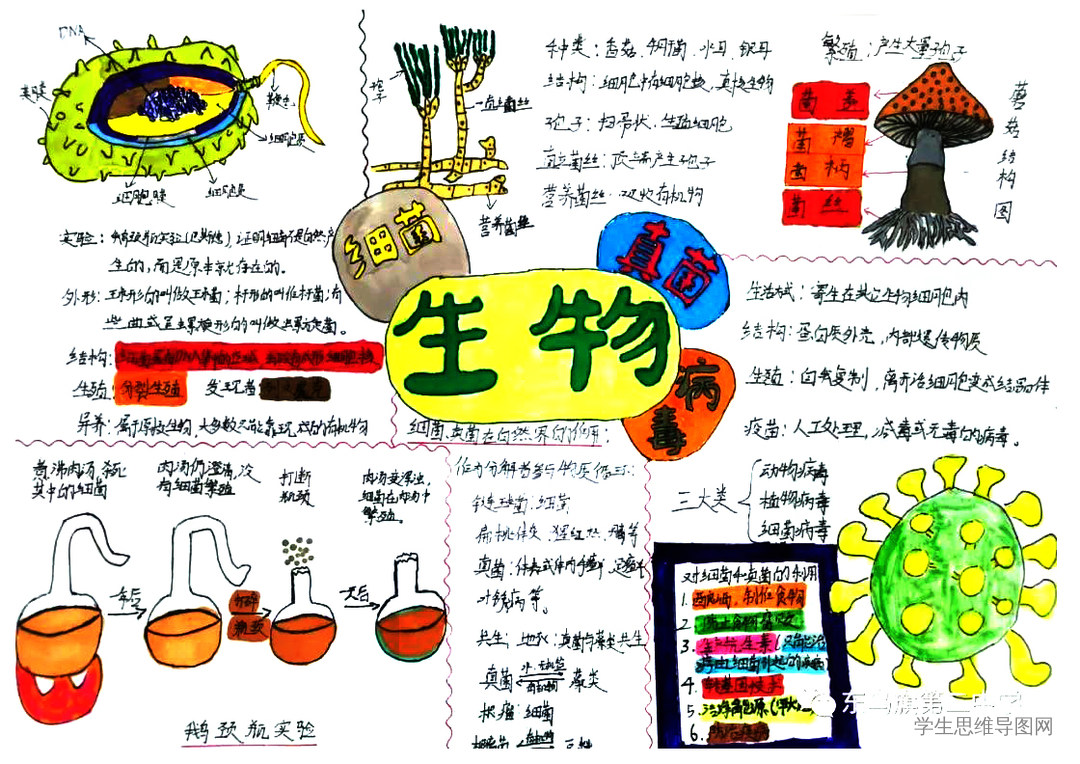 DNA
荚膜
鞭毛
细胞质
细胞壁
细胞膜
孢子
直立菌丝
营养菌丝
种类：香菇、
结构：细胞内有细胞核，真核生物
孢子：扫帚状，生殖细胞
直立菌丝：顶端产生孢子
营养菌丝：吸收有机物
繁殖：产生大量孢子
菌盖
菌褶
菌柄
菌丝
蘑菇结构图
细菌
真菌
生物
病毒
实验：鹅颈瓶实验(巴斯德)，证明细菌不是自然产
生的，而是原来就存在的。
外形：球形的叫做球菌；杆形的叫做杆菌；有
些曲或呈螺旋形的叫做
结构：
生殖：分裂生殖 发现者
异养：属于原核生物，大多数只能靠现成的有机物
生活方式：寄生在其它生物细胞内
结构：蛋白质外壳，内部遗传物质
生殖：自我复制，离开活细胞变成结晶体
疫苗：人工处理，减毒或无毒的病毒。
煮沸肉汤，杀死
其中的细菌
肉汤仍澄清，没
有细菌繁殖
打断
瓶颈
肉汤变浑浊，
细菌在肉汤中
繁殖。
年后
打碎
瓶颈
天后
鹅颈瓶实验
细菌、真菌在自然界的作用：
作为分解者参与物质循环：
链球菌：细菌
扁桃体炎、猩红热、
真菌：
叶锈病等。
共生：地衣：真菌与藻类共生
真菌
水、无机盐
有机物
藻类
根瘤：细菌
有机物
三大类
动物病毒
植物病毒
细菌病毒
对细菌和真菌的利用
1. 制作食物
2. 防止食物腐败
3. 生抗生素
病由细菌引起的疾病
4. 转基因技术
5.
6.
东乌旗第二中学
学生思维导图网